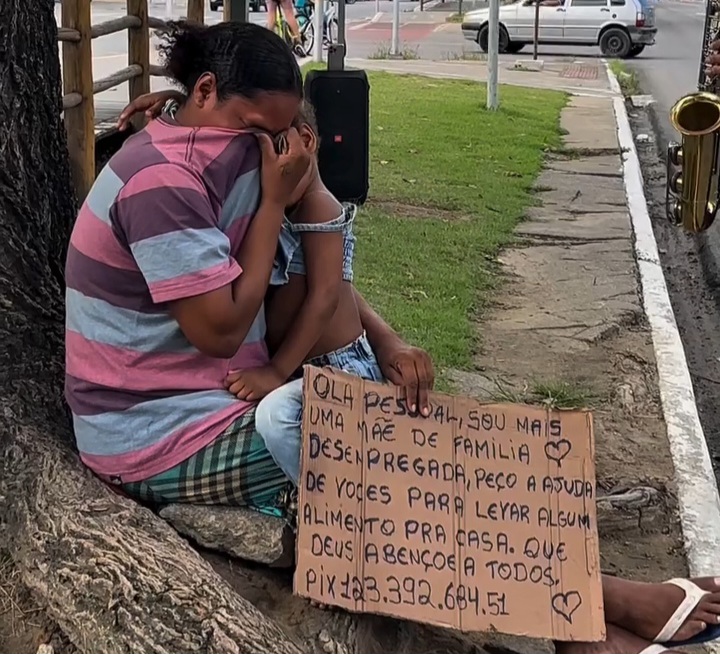 OLA PESSOAL, SOU MAIS
UMA MÃE DE FAMÍLIA
DESENPREGADA, PEÇO A AJUDA
DE VOCES PARA LEVAR ALGUM
ALIMENTO PRA CASA. QUE
DEUS ABENÇOE A TODOS.
PIX 123.392.684.51